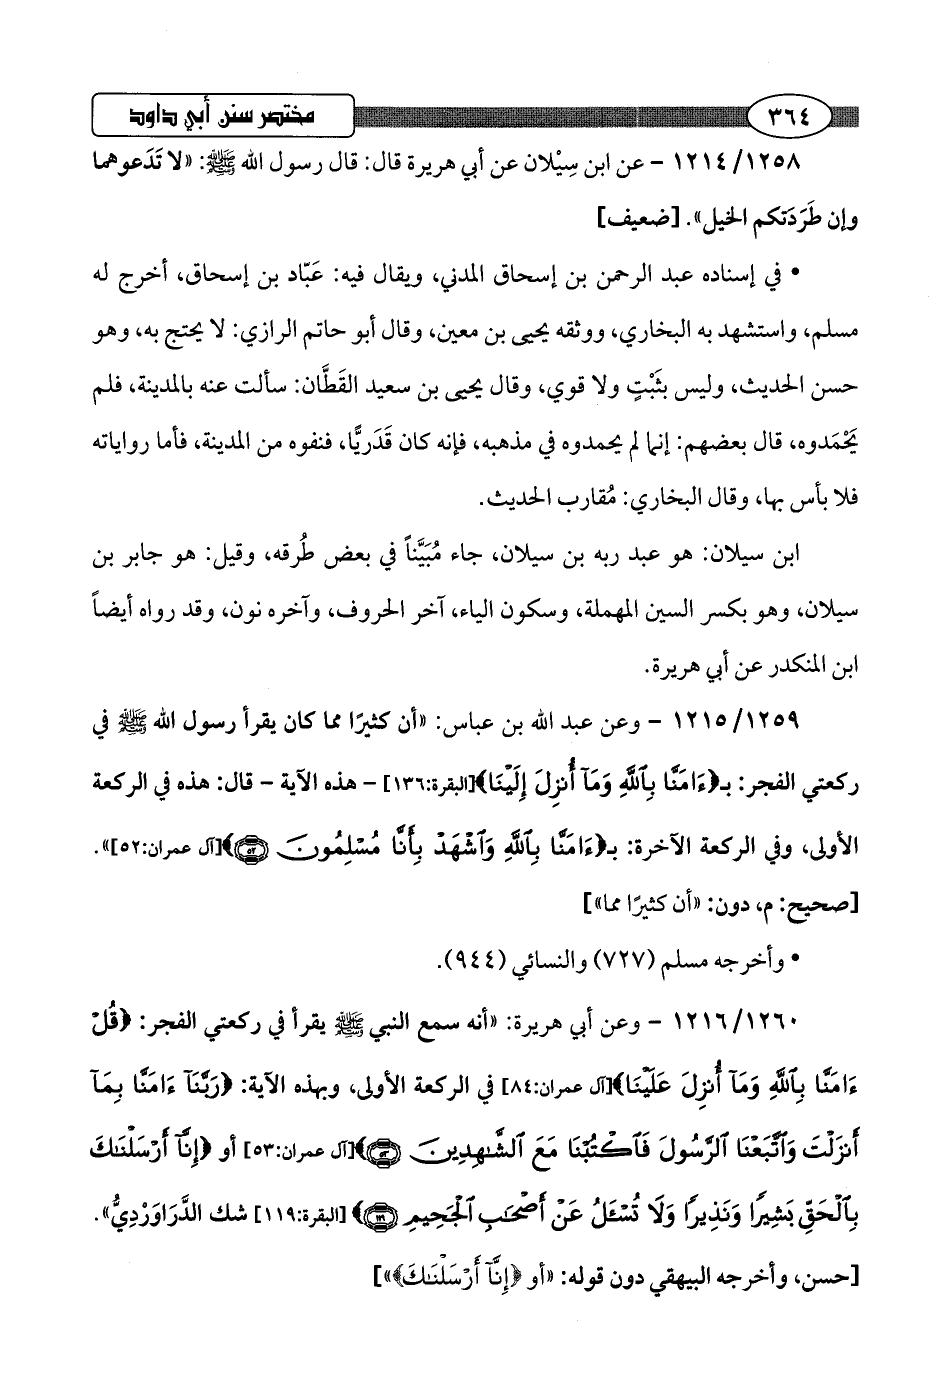 مختصر سنن أبي داود
٣٦٤
١٢١٤/١٢٥٨ – عن ابن سِيْلان عن أبي هريرة قال: قال رسول الله ﷺ: «لا تَدَعوهما
وإن طَرَدَتكم الخيل». [ضعيف]
• في إسناده عبد الرحمن بن إسحاق المدني، ويقال فيه: عَبَّاد بن إسحاق، أخرج له
مسلم، واستشهد به البخاري، ووثقه يحيى بن معين، وقال أبو حاتم الرازي: لا يحتج به، وهو
حسن الحديث، وليس بثَبْتٍ ولا قوي، وقال يحيى بن سعيد القَطَّان: سألت عنه بالمدينة، فلم
يَحْمَدوه، قال بعضهم: إنما لم يحمدوه في مذهبه، فإنه كان قَدَريًّا، فنفوه من المدينة، فأما رواياته
فلا بأس بها، وقال البخاري: مُقارب الحديث.
ابن سيلان: هو عبد ربه بن سيلان، جاء مُبَيَّناً في بعض طُرقه، وقيل: هو جابر بن
سيلان، وهو بكسر السين المهملة، وسكون الياء، آخر الحروف، وآخره نون، وقد رواه أيضاً
ابن المنكدر عن أبي هريرة.
١٢١٥/١٢٥٩ – وعن عبد الله بن عباس: «أن كثيرًا مما كان يقرأ رسول الله ﷺ في
ركعتي الفجر: بـ﴿ءَامَنَّا بِٱللَّهِ وَمَآ أُنزِلَ إِلَيْنَا﴾[البقرة:١٣٦] – هذه الآية – قال: هذه في الركعة
الأولى، وفي الركعة الآخرة: بـ﴿ءَامَنَّا بِٱللَّهِ وَٱشْهَدْ بِأَنَّا مُسْلِمُونَ ٥٢﴾[آل عمران:٥٢]».
[صحيح: م، دون: «أن كثيرًا مما»]
• وأخرجه مسلم (٧٢٧) والنسائي (٩٤٤).
١٢١٦/١٢٦٠ – وعن أبي هريرة: «أنه سمع النبي ﷺ يقرأ في ركعتي الفجر: ﴿قُلْ
ءَامَنَّا بِٱللَّهِ وَمَآ أُنزِلَ عَلَيْنَا﴾[آل عمران:٨٤] في الركعة الأولى، وبهذه الآية: ﴿رَبَّنَآ ءَامَنَّا بِمَآ
أَنزَلْتَ وَٱتَّبَعْنَا ٱلرَّسُولَ فَٱكْتُبْنَا مَعَ ٱلشَّٰهِدِينَ ٥٣﴾[آل عمران:٥٣] أو ﴿إِنَّآ أَرْسَلْنَٰكَ
بِٱلْحَقِّ بَشِيرًا وَنَذِيرًا وَلَا تُسْـَٔلُ عَنْ أَصْحَٰبِ ٱلْجَحِيمِ ١١٩﴾ [البقرة:١١٩] شك الدَّرَاوَرْدِيُّ».
[حسن، وأخرجه البيهقي دون قوله: «أو ﴿إِنَّآ أَرْسَلْنَٰكَ﴾»]